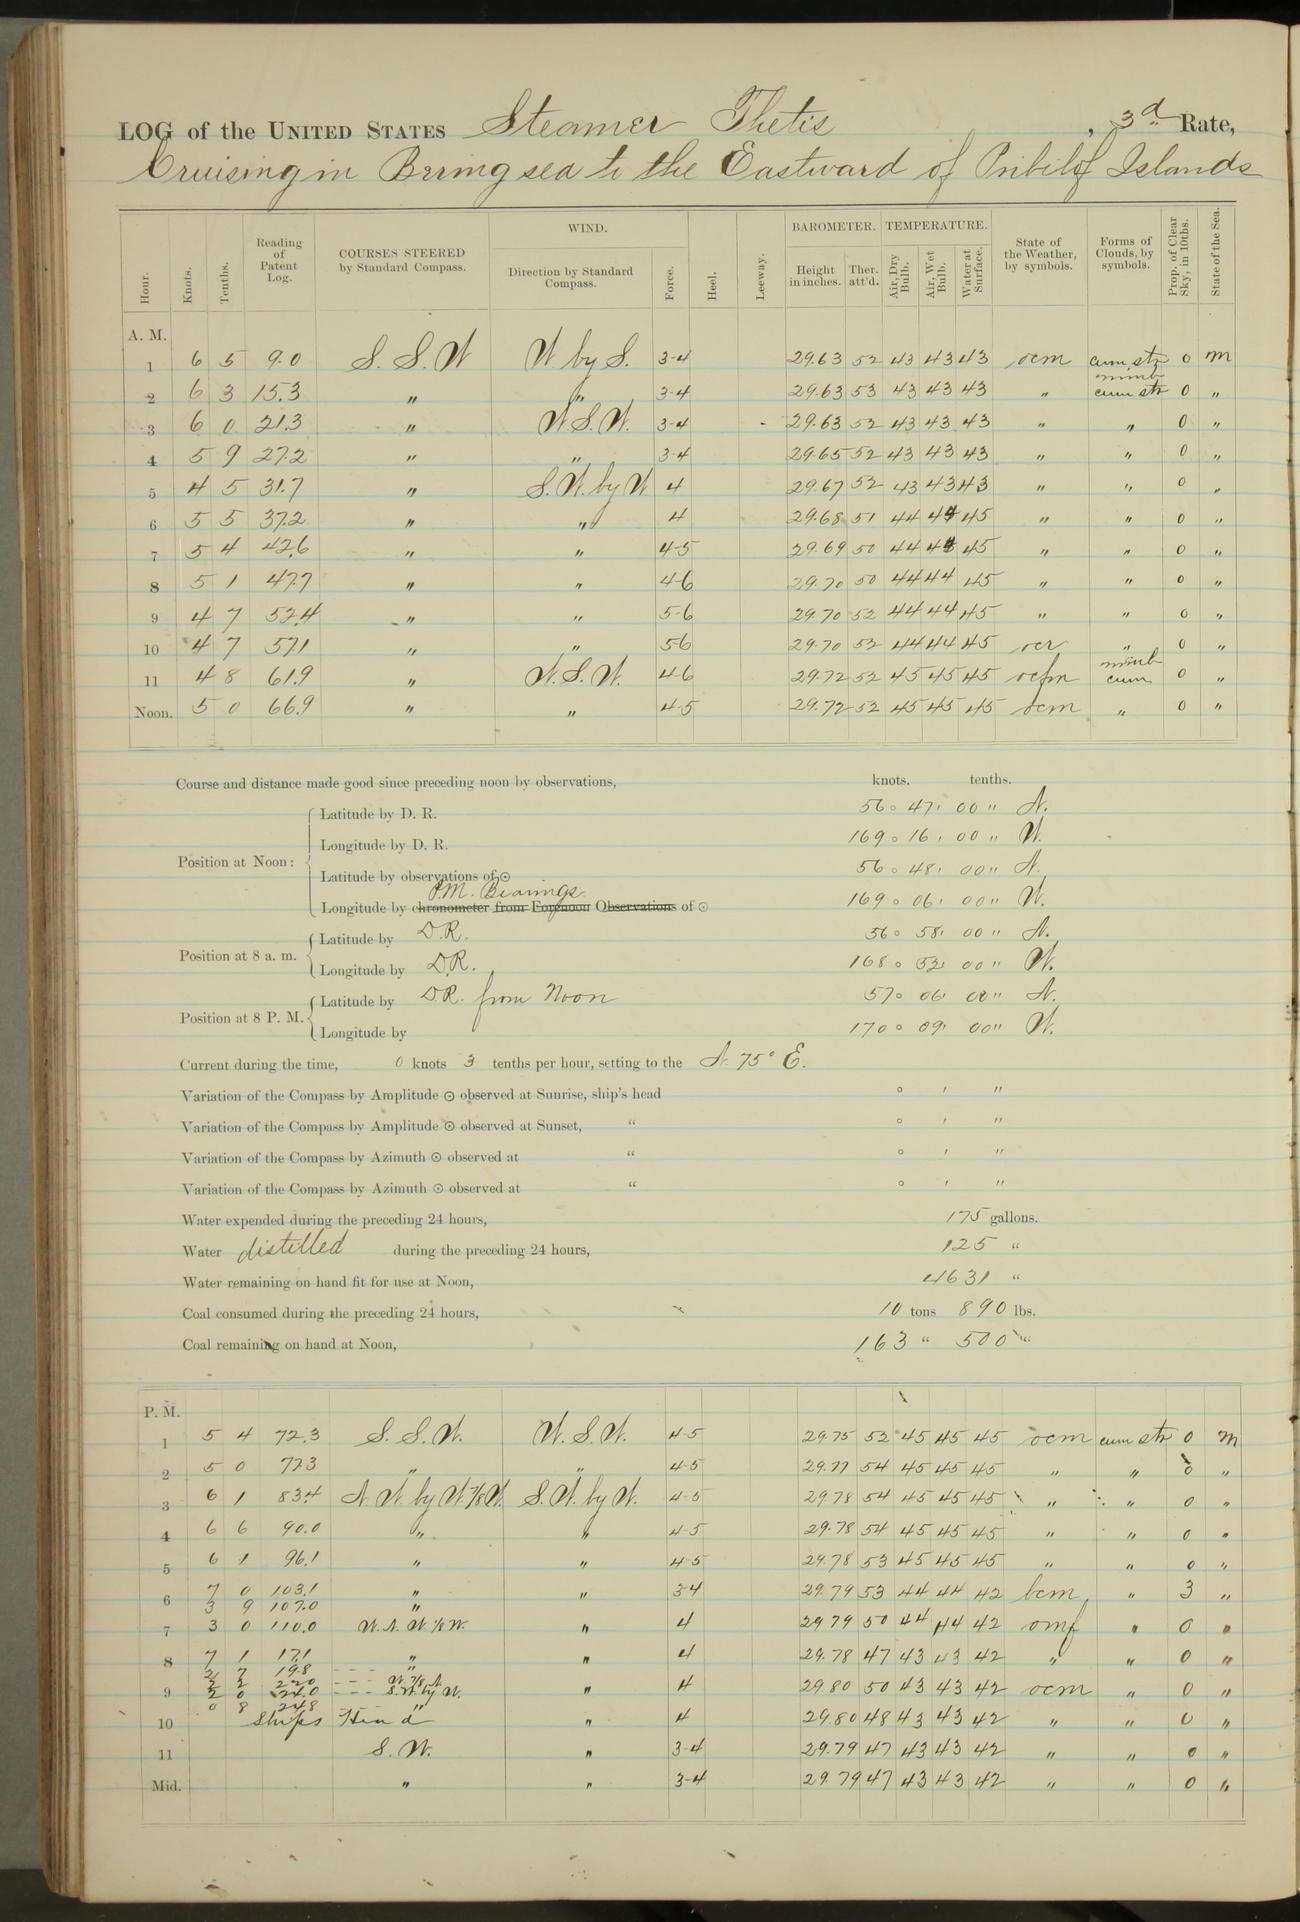 LOG of the UNITED STATES Steamer Thetis, 3d Rate,
Cruising in Bering sea to the Eastward of Pribilof Islands
Hour. Knots. Tenths. Reading of Patent Log. COURSES STEERED by Standard Compass. WIND. Direction by Standard Compass. Force. Heel. Leeway. BAROMETER. Height in inches. Ther. att'd. TEMPERATURE. Air, Dry Bulb. Air, Wet Bulb. Water at Surface. State of the Weather, by symbols. Forms of Clouds, by symbols. Prop. of Clear Sky, in 10ths. State of the Sea.
A. M.
1 6 5 9.0 S. S. W W by S. 3-4 29.63 52 43 43 43 ocm cum. str nimb 0 M
2 6 3 15.3 " " 3-4 29.63 53 43 43 43 " cum str 0 "
3 6 0 21.3 " W.S.W. 3-4 29.63 52 43 43 43 " " 0 "
4 5 9 27.2 " " 3-4 29.65 52 43 43 43 " " 0 "
5 4 5 31.7 " S.W. by W. 4 29.67 52 43 43 43 " " 0 "
6 5 5 37.2 " " 4 29.68 51 44 44 45 " " 0 "
7 5 4 42.6 " " 4-5 29.69 50 44 44 45 " " 0 "
8 5 1 47.7 " " 4-6 29.70 50 44 44 45 " " 0 "
9 4 7 52.4 " " 5-6 29.70 52 44 44 45 " " 0 "
10 4 7 57.1 " " 5-6 29.70 52 44 44 45 ocr " 0 "
11 4 8 61.9 " W.S.W. 4-6 29.72 52 45 45 45 ocfm nimb cum 0 "
Noon. 5 0 66.9 " " 4-5 29.72 52 45 45 45 ocm " 0 "
Course and distance made good since preceding noon by observations, knots. tenths.
Position at Noon:
Latitude by D. R. 56° 47' 00" N.
Longitude by D. R. 169° 16' 00" W.
Latitude by observations of ☉ 56° 48' 00" N.
P.M. Bearings
Longitude by chronometer from Forenoon Observations of ☉ 169° 06' 00" W.
Position at 8 a. m.
Latitude by D.R. 56° 58' 00" N.
Longitude by D.R. 168° 52' 00" W.
Position at 8 P. M.
Latitude by D.R. from Noon 57° 06' 00" N.
Longitude by 170° 09' 00" W.
Current during the time, 0 knots 3 tenths per hour, setting to the N. 75° E.
Variation of the Compass by Amplitude ☉ observed at Sunrise, ship's head ° ' "
Variation of the Compass by Amplitude ☉ observed at Sunset, " ° ' "
Variation of the Compass by Azimuth ☉ observed at " ° ' "
Variation of the Compass by Azimuth ☉ observed at " ° ' "
Water expended during the preceding 24 hours, 175 gallons.
Water distilled during the preceding 24 hours, 125 "
Water remaining on hand fit for use at Noon, 4631 "
Coal consumed during the preceding 24 hours, 10 tons 890 lbs.
Coal remaining on hand at Noon, 163 " 500 "
P. M.
1 5 4 72.3 S. S. W. W. S. W. 4-5 29.75 52 45 45 45 ocm cum str 0 M
2 5 0 77.3 " " 4-5 29.77 54 45 45 45 " " 0 "
3 6 1 83.4 N. W. by W. 7/8 W. S. W. by W. 4-5 29.78 54 45 45 45 " " 0 "
4 6 6 90.0 " " 4-5 29.78 54 45 45 45 " " 0 "
5 6 1 96.1 " " 4-5 29.78 53 45 45 45 " " 0 "
6 7 0 103.1 " " 3-4 29.79 53 44 44 42 bcm " 3 "
3 9 107.0 "
7 3 0 110.0 W. N. W. 1/8 W. " 4 29.79 50 44 44 42 omf " 0 "
8 7 1 17.1 " " 4 29.78 47 43 43 42 " " 0 "
2 7 19.8 - - - "
9 2 2 22.0 - - - W. 7/8 N. " 4 29.80 50 43 43 42 ocm " 0 "
2 0 24.0 - - - S. W. by W.
0 8 24.8 - - - "
10 Ships Head " 4 29.80 48 43 43 42 " " 0 "
11 S. W. " 3-4 29.79 47 43 43 42 " " 0 "
Mid. " " 3-4 29.79 47 43 43 42 " " 0 "